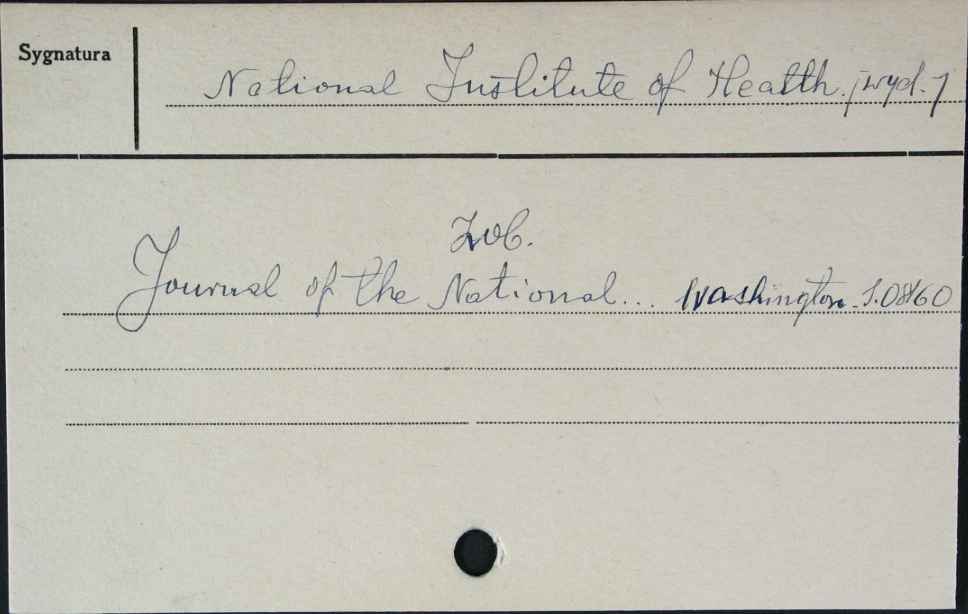 Sygnatura
National Institute of Health. [wyd.]
Zob.
Journal of the National... Washington.